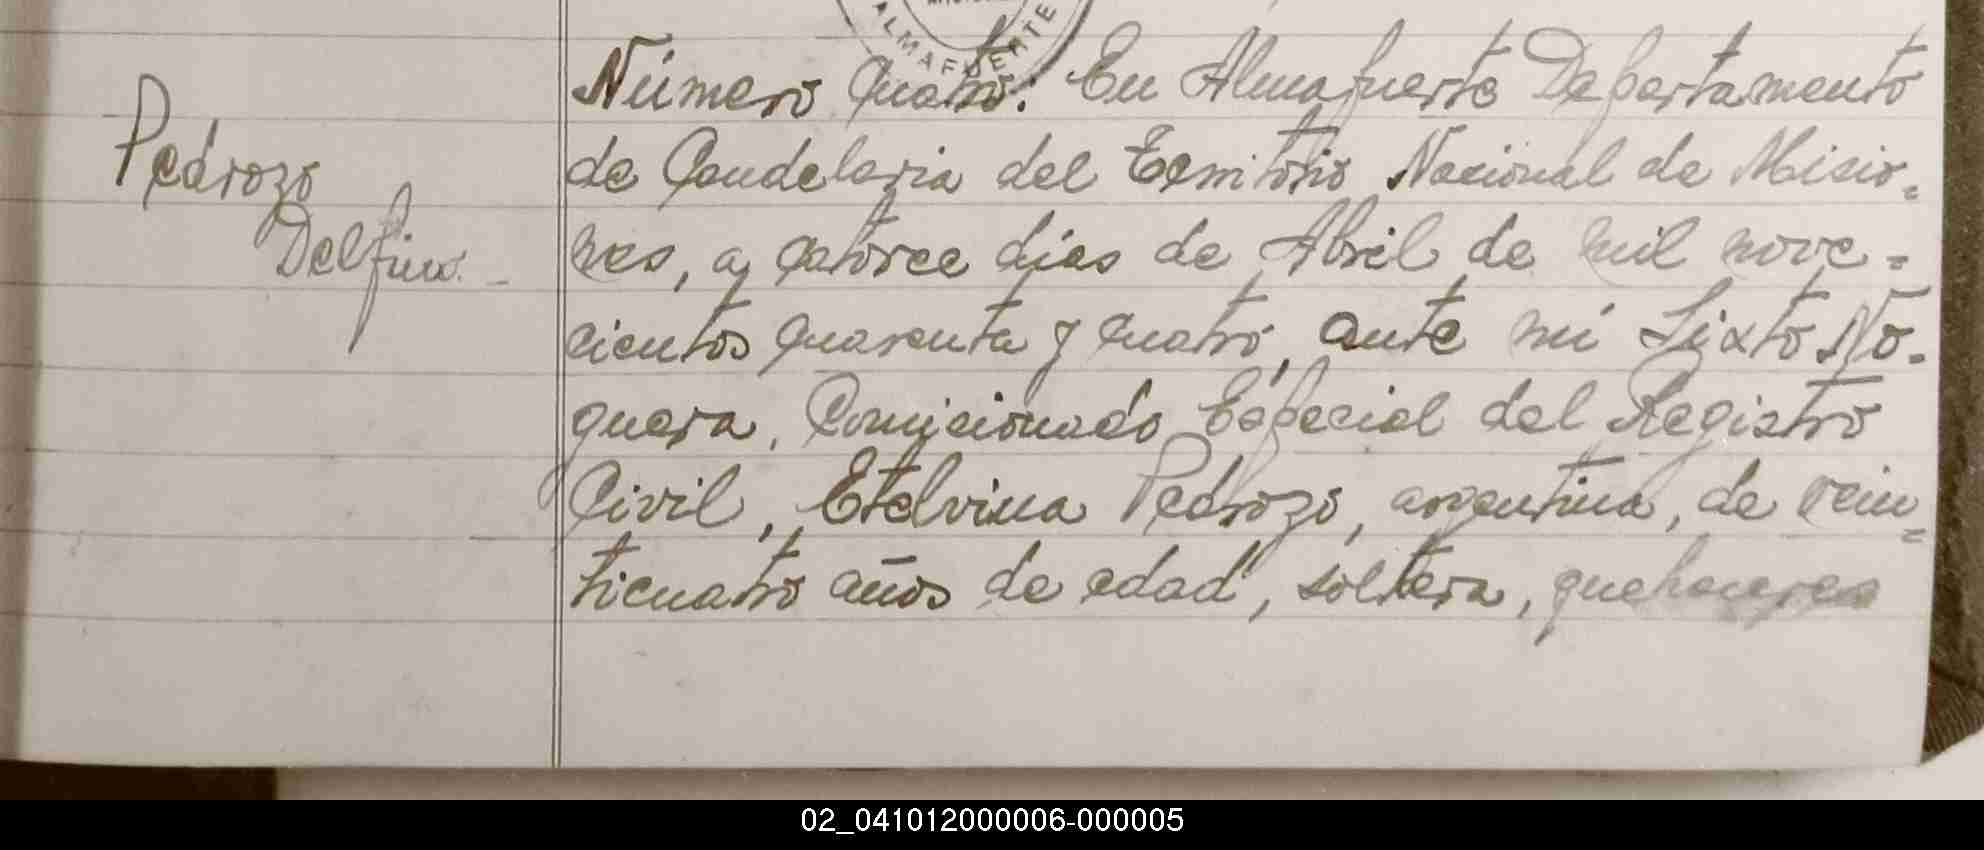 ALMAFUERTE
Número Cuatro: En Almafuerte Departamento
Pedrozo
Delfina. -
de Candelaria del Territorio Nacional de Misio=
nes, a catorce días de Abril de mil nove=
cientos cuarenta y cuatro, ante mí Sixto No=
guera, Comicionado Especial del Registro
Civil, Etelvina Pedrozo, argentina, de vein=
ticuatro años de edad, soltera, quehaceres
02_041012000006-000005